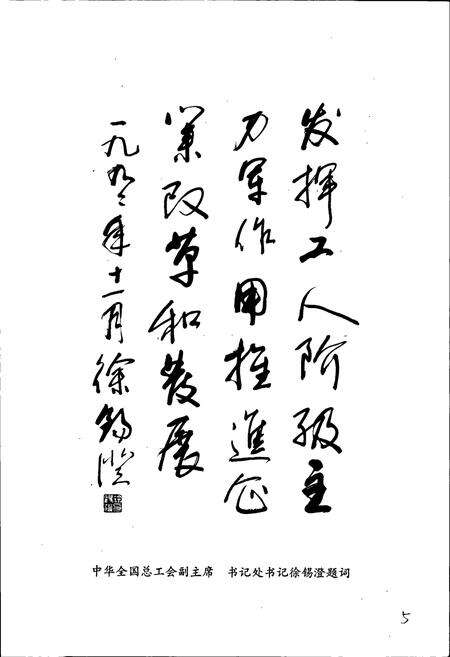 发挥工人阶级主
力军作用推進企
業改革和发展
一九九二年十一月 徐锡澄
中华全国总工会副主席 书记处书记徐锡澄题词
5